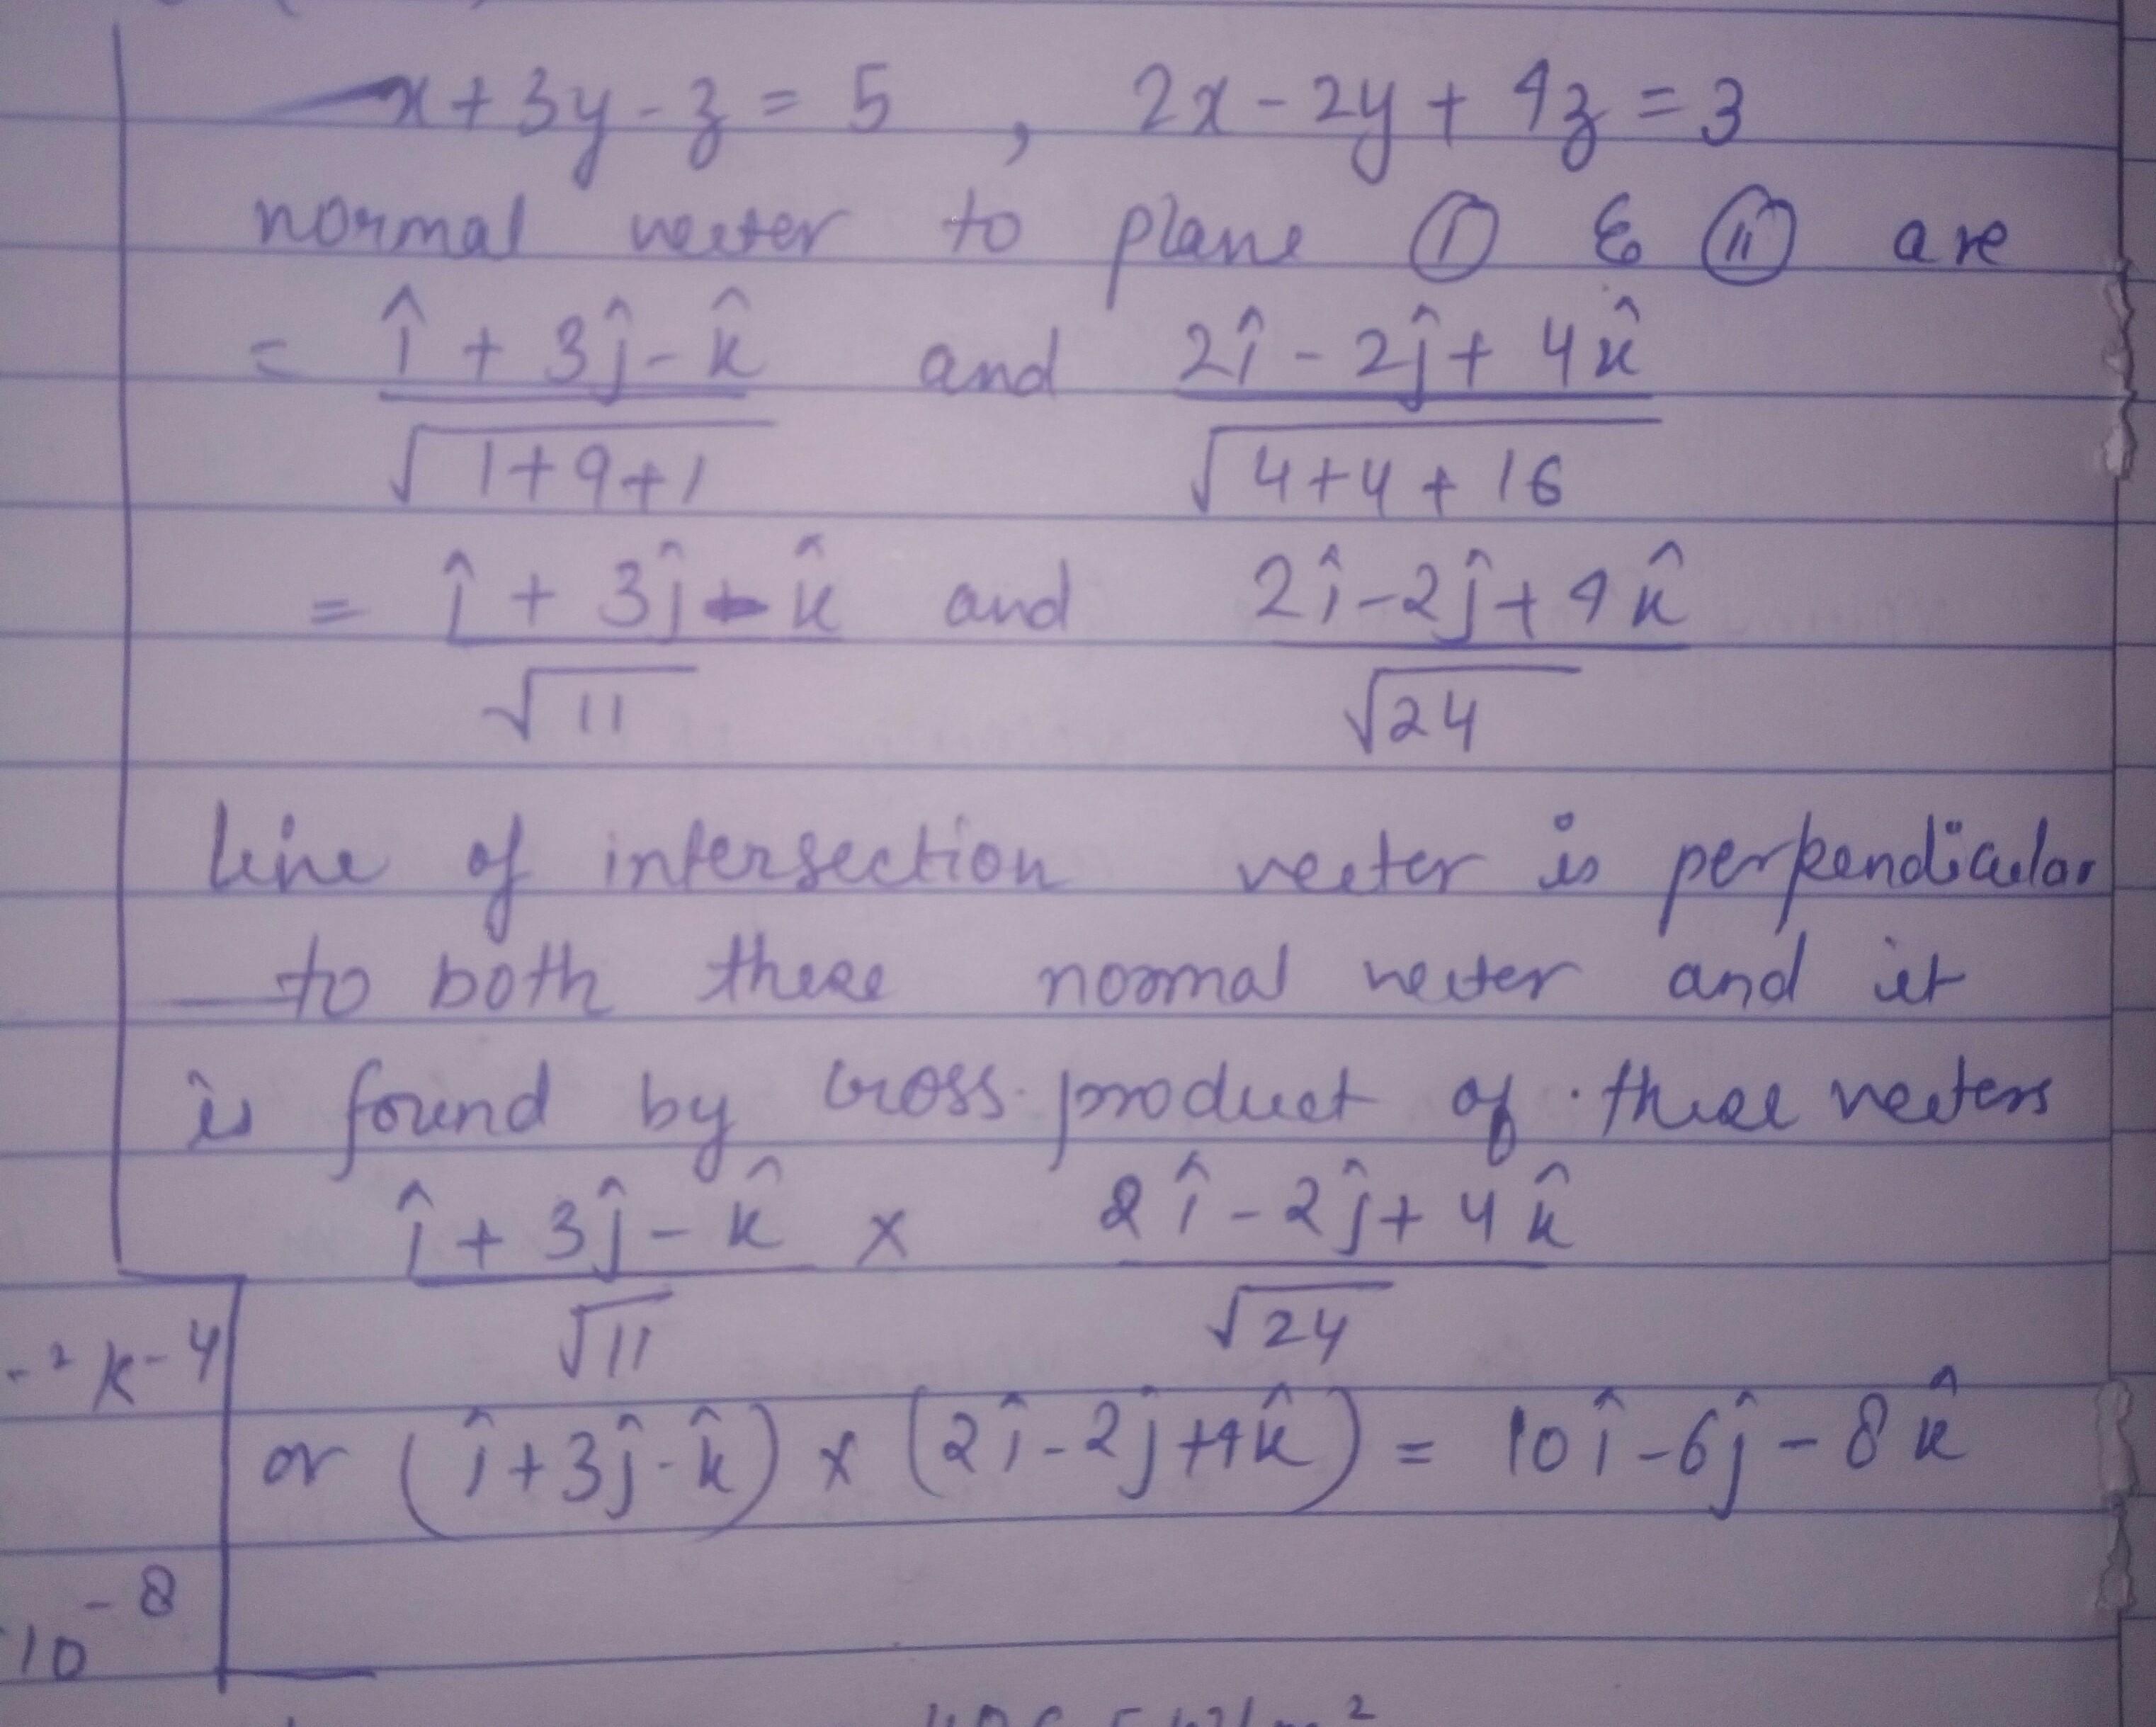 x + 3y - z = 5 , 2x - 2y + 4z = 3
normal vector to plane Ⓘ & ⓘⓘ are
= î + 3ĵ - k̂ and 2î - 2ĵ + 4k̂
√1+9+1 √4+4+16
= î + 3ĵ - k̂ and 2î - 2ĵ + 4k̂
√11 √24
line of intersection vector is perpendicular
to both these normal vector and it
is found by cross product of these vectors
î + 3ĵ - k̂ × 2î - 2ĵ + 4k̂
√11 √24
-2k-4
or (î+3ĵ-k̂) × (2î-2ĵ+4k̂) = 10î-6ĵ-8k̂
-8
10